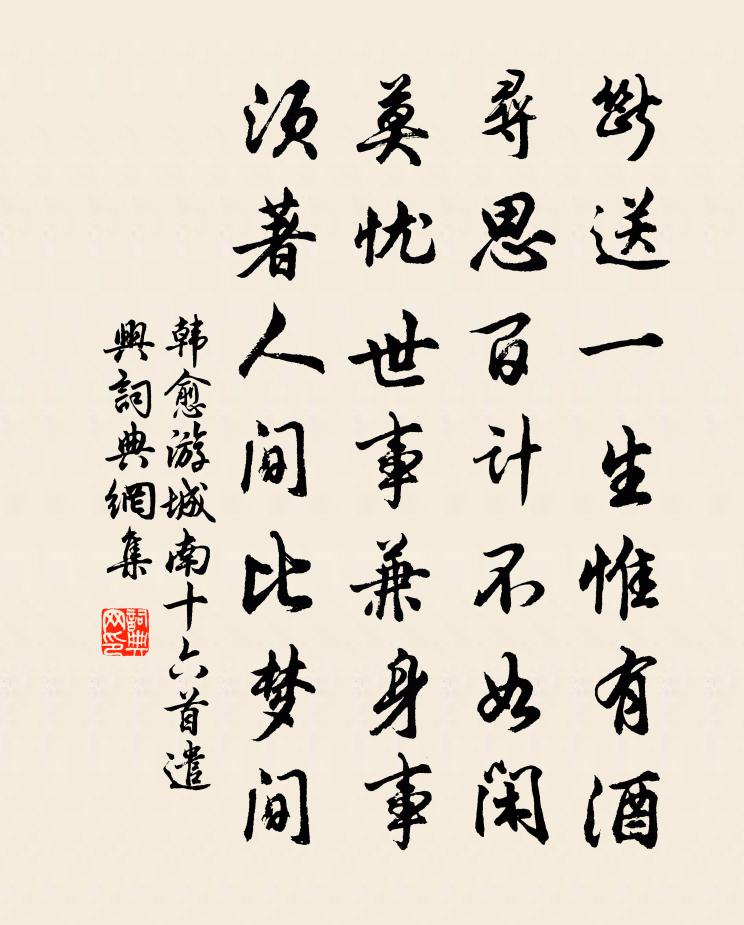 斷送一生惟有酒
尋思百计不如闲
莫忧世事兼身事
须著人间比梦间
韩愈游城南十六首遣
興詞典網集
詞典
网印